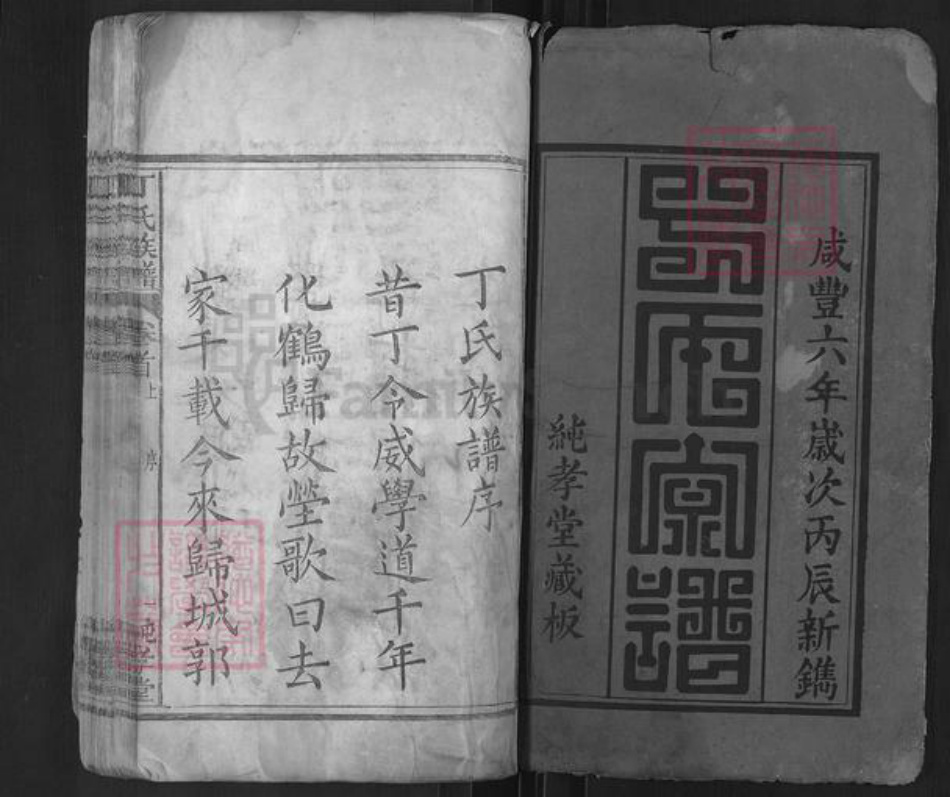 咸豐六年歲次丙辰新鐫
家譜
純孝堂藏板
丁氏族譜序
昔丁令威學道千年
化鶴歸故塋歌曰去
家千載今來歸城郭
丁氏族譜 卷首上 序 純孝堂